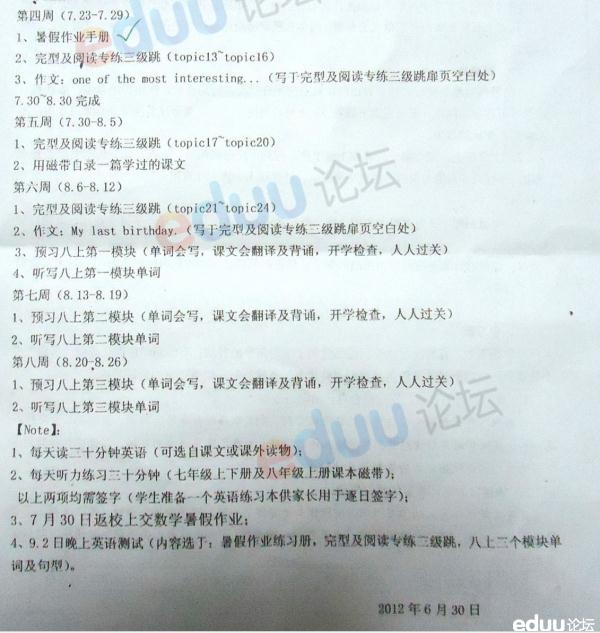 第四周（7.23-7.29）
1、暑假作业手册
2、完型及阅读专练三级跳（topic13~topic16）
3、作文：one of the most interesting...（写于完型及阅读专练三级跳扉页空白处）
7.30~8.30 完成
第五周（7.30-8.5）
1、完型及阅读专练三级跳（topic17~topic20）
2、用磁带自录一篇学过的课文
第六周（8.6-8.12）
1、完型及阅读专练三级跳（topic21~topic24）
2、作文：My last birthday.（写于完型及阅读专练三级跳扉页空白处）
3、预习八上第一模块（单词会写，课文会翻译及背诵，开学检查，人人过关）
4、听写八上第一模块单词
第七周（8.13-8.19）
1、预习八上第二模块（单词会写，课文会翻译及背诵，开学检查，人人过关）
2、听写八上第二模块单词
第八周（8.20-8.26）
1、预习八上第三模块（单词会写，课文会翻译及背诵，开学检查，人人过关）
2、听写八上第三模块单词
【Note】：
1、每天读二十分钟英语（可选自课文或课外读物）；
2、每天听力练习三十分钟（七年级上下册及八年级上册课本磁带）；
以上两项均需签字（学生准备一个英语练习本供家长用于逐日签字）；
3、7月30日返校上交数学暑假作业；
4、9.2日晚上英语测试（内容选于：暑假作业练习册，完型及阅读专练三级跳，八上三个模块单
词及句型）。
2012年6月30日
eduu论坛
eduu论坛
eduu论坛
eduu论坛